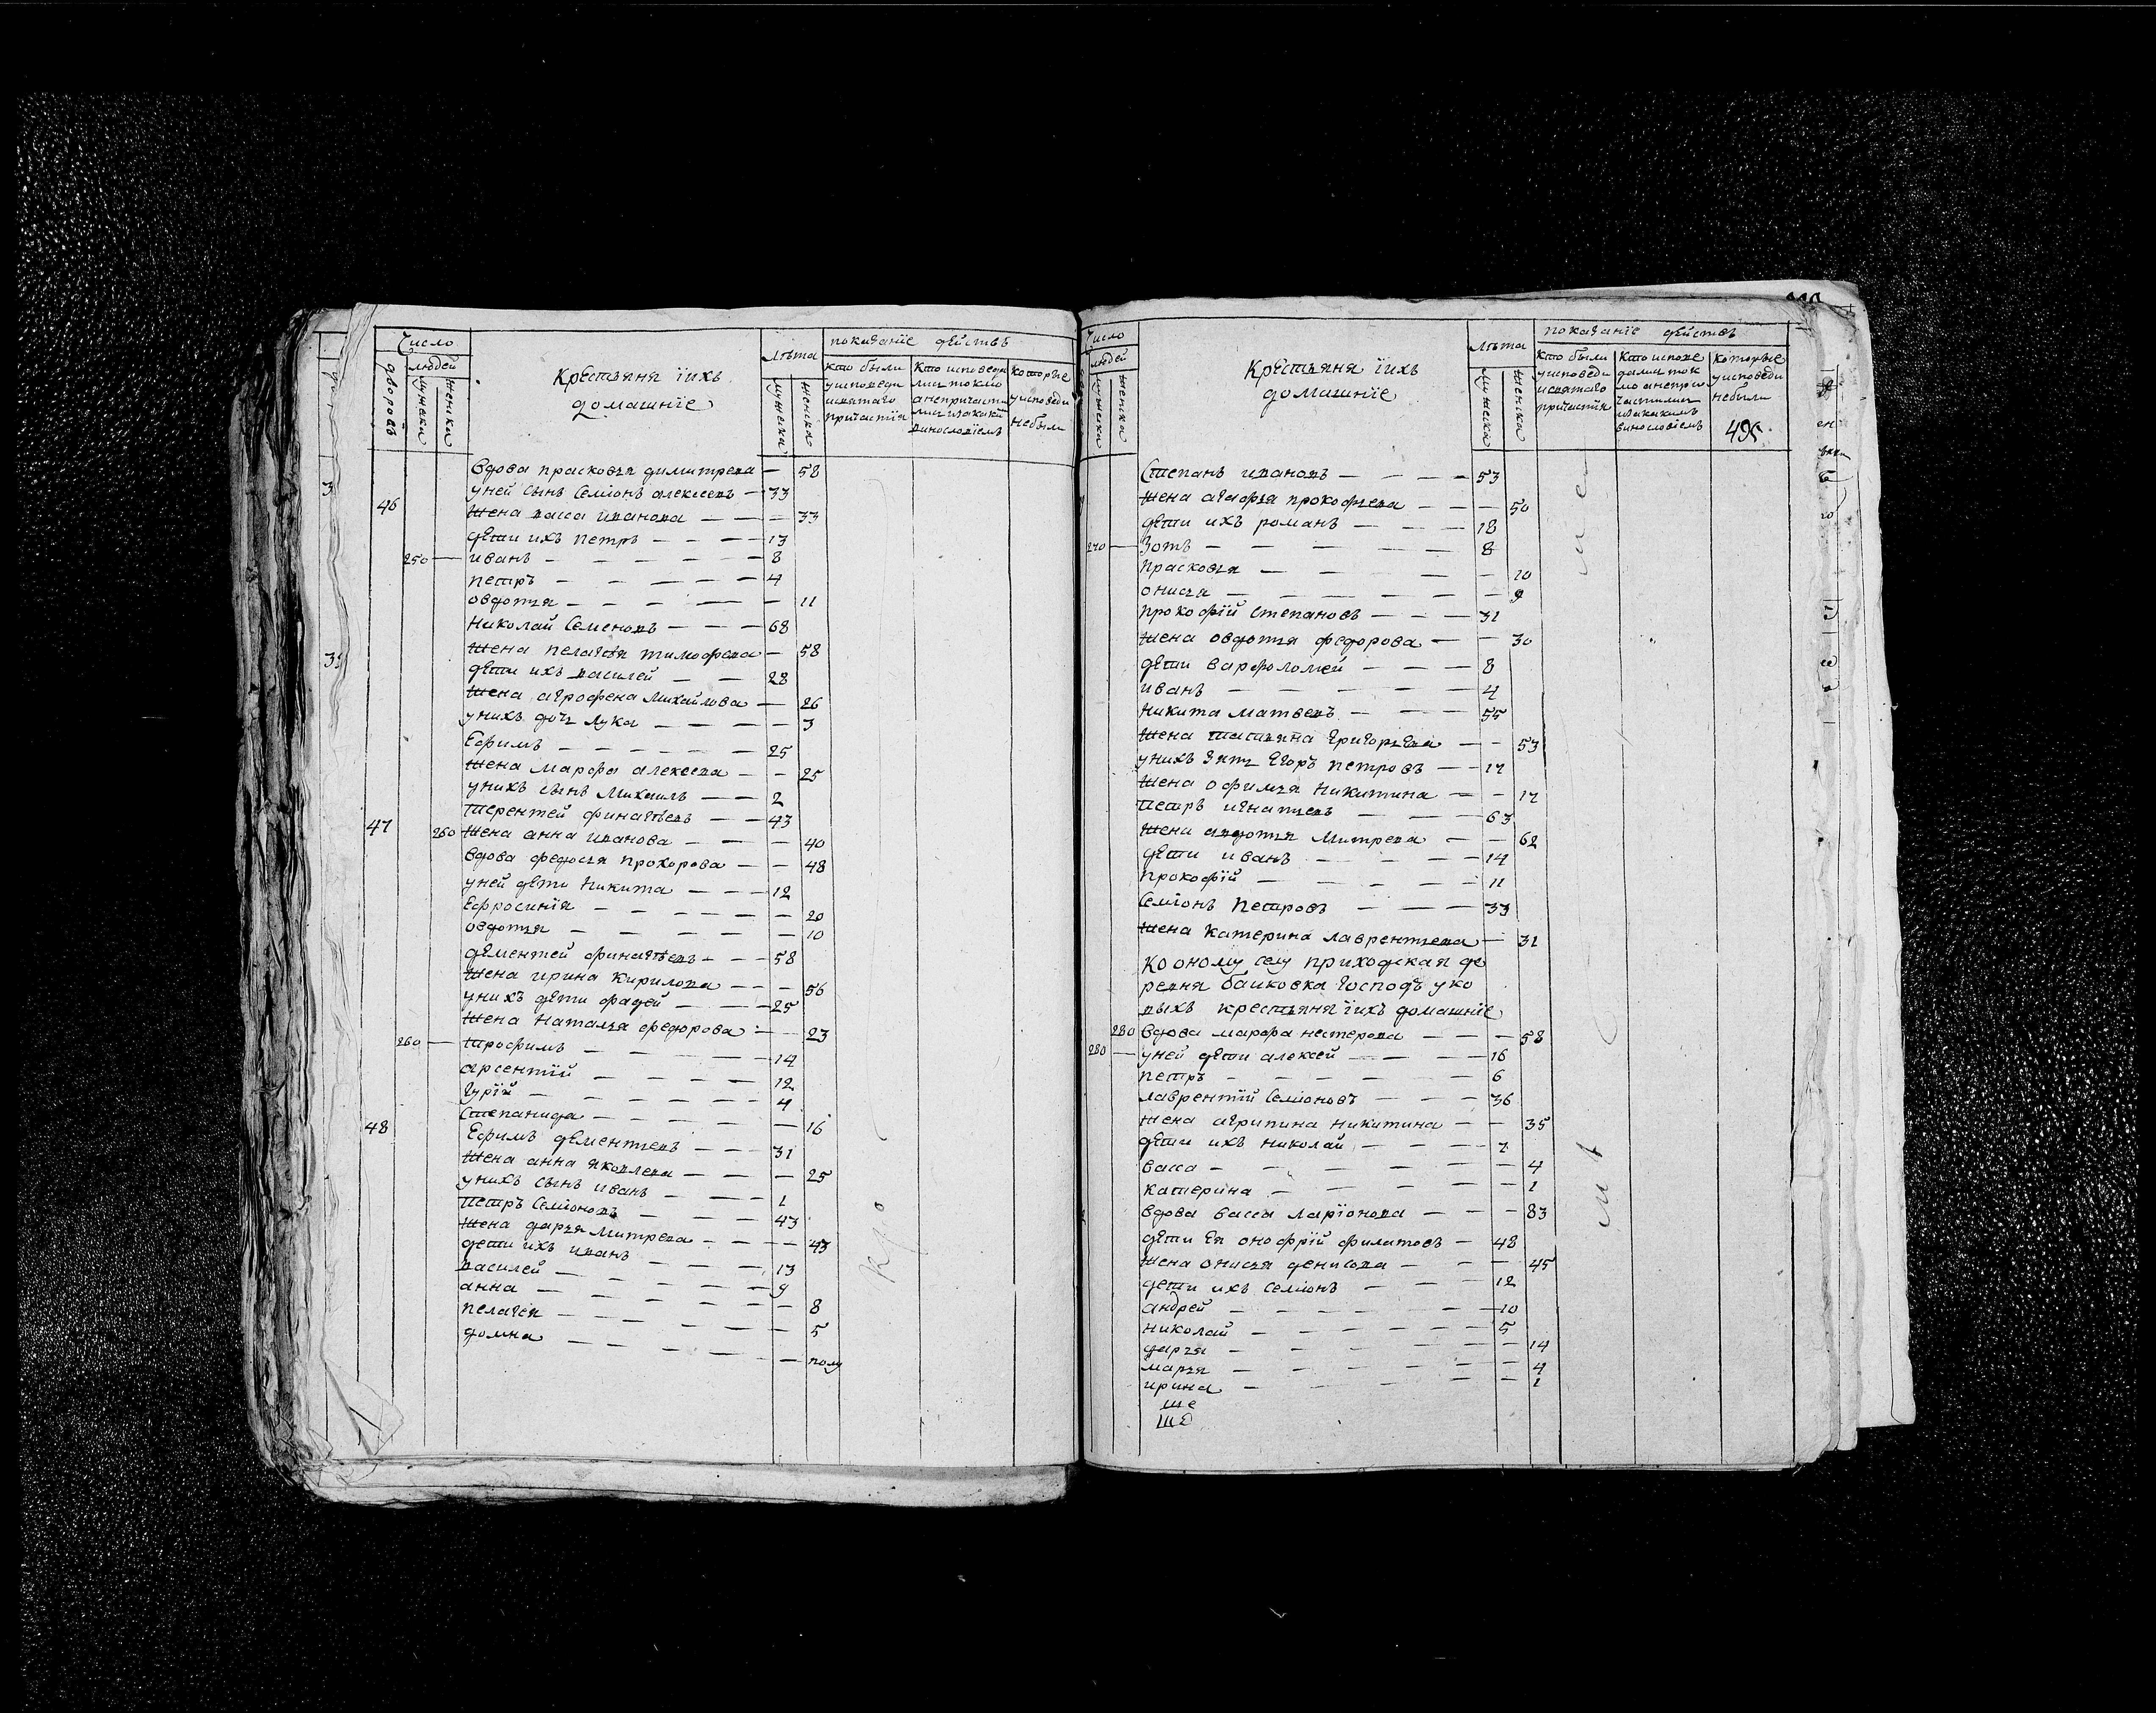 Число
людей
дворовъ
мужеска
женска
Крестьяня їихъ
домашнїе
Лѣта
мужеска
женска
показанїе дѣйствъ
кто были
уисповеди
исвятаго
причастїя
Кто исповеда
лис токмо
анепричасти
лис
винословїемъ
которые
уисповеди
небыли
Вдова прасковья димитрева — 58
46 уней сынъ Семіонъ алексеевъ — 33
жена васса иванова — — — 33
дети ихъ петръ — — — 13
250 — иванъ — — — — 8
петръ — — — — — 4
овдотья — — — — — 11
Николай Семеновъ — — — 68
жена пелагея тимофева — 58
дети ихъ василей — — 28
жена аграфена михайлова — 26
унихъ дочь лука — — — — 3
Ефимъ — — — — — 25
жена марфа алексева — — 25
унихъ сынъ михаилъ — — 2
47 терентей финагѣевъ — — 43
260 жена анна иванова — — — 40
вдова федосья прохорова — — 48
уней дети никита — — — 12
Ефросинїя — — — — — 20
овдотья — — — — — 10
дементей финагѣевъ — — — 58
жена ирина кирилова — — — 56
унихъ дети фадей — — — 25
жена наталья федорова — — 23
260 — трофимъ — — — — 14
арсентїй — — — — 12
Гурїй — — — — — 4
Степанида — — — — — 16
48 Ефимъ дементьевъ — — — 31
жена анна яковлева — — — 25
унихъ сынъ иванъ — — — 1
петръ Семіоновъ — — — 43
жена дарья митрева — — — 43
дети ихъ иванъ — — — 13
василей — — — — — 9
анна — — — — — — 8
пелагея — — — — — 5
домна — — — — — полу
Число
людей
мужеска
женска
Крестьяня їихъ
домашнїе
Лѣта
мужеска
женска
показанїе дѣйствъ
кто были
уисповеди
исвятаго
причастїя
Кто испове
дались ток
мо анепри
частились
винословїемъ
которые
уисповеди
небыли
495
Степанъ ивановъ — — — — 53
жена агафья прокофьева — — — 50
дети ихъ романъ — — — 18
270 — Зотъ — — — — — 8
прасковья — — — — 10
онисья — — — — — 9
прокофїй степановъ — — — 31
жена овдотья федорова — — 30
дети варфоломей — — — 8
иванъ — — — — — 4
никита матвевъ — — — 55
жена татьяна григорьева — — 53
унихъ зять Егоръ петровъ — — 17
жена офимья никитина — — 17
петръ игнатьевъ — — — 63
жена авдотья митрева — — 62
дети иванъ — — — — 14
прокофїй — — — — — 11
Семіонъ петровъ — — — 33
жена катерина лаврентьева — 31
ко оному селу приходская де
ревня баиковка господъ уко
выхъ крестьяня їихъ домашнїе
280 вдова марфа нестерова — — — 58
280 — уней дети алексей — — — 16
петръ — — — — — 6
лаврентїй Семіоновъ — — — 36
жена агрипина никитина — — 35
дети ихъ николай — — — 7
васса — — — — — — 4
катерина — — — — — 1
вдова васса ларїонова — — — 83
дети Ея онофрїй филатовъ — 48
жена онисья денисова — — — 45
дети ихъ Семіонъ — — 12
андрей — — — — — 10
николай — — — — — 5
дарья — — — — — — 14
марья — — — — — — 4
ирина — — — — — 1